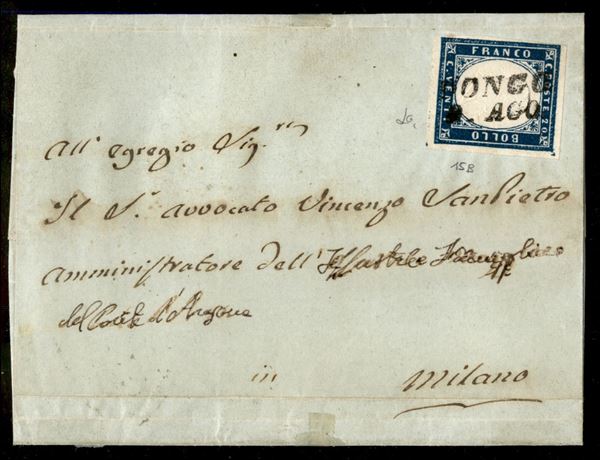 FRANCO
C. VENTI
POSTE 20
BOLLO
ONGO
AGO
15B
All' egregio Sig.re
Il S.r avvocato Vincenzo SanPietro
amministratore dell'
del Conte d'Aragona
in
Milano